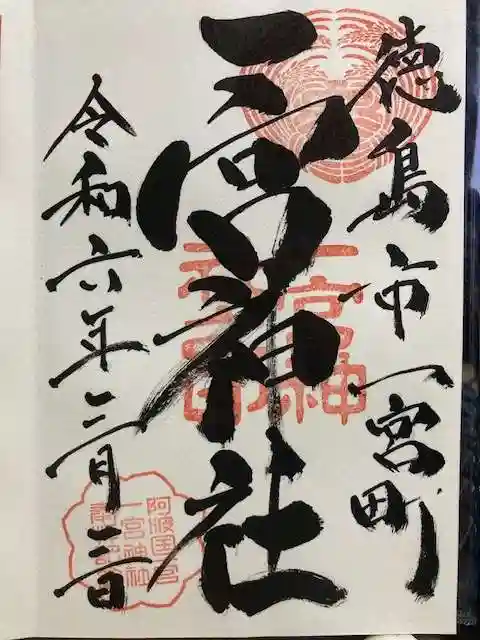 徳島市一宮町
一宮神社
令和六年三月三日
一宮神
社之印
阿波国一宮
一宮神社